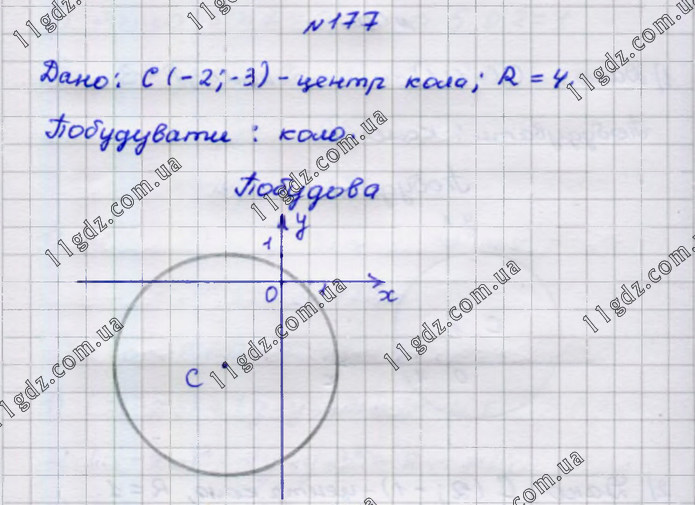 11gdz.com.ua
№177
11gdz.com.ua
Дано: C(-2;-3) - центр кола; R = 4.
11gdz.com.ua
Побудувати: коло.
11gdz.com.ua
Побудова
11gdz.com.ua
y
1
0 1 x
11gdz.com.ua
11gdz.com.ua
11gdz.com.ua
C
11gdz.com.ua
11gdz.com.ua
11gdz.com.ua